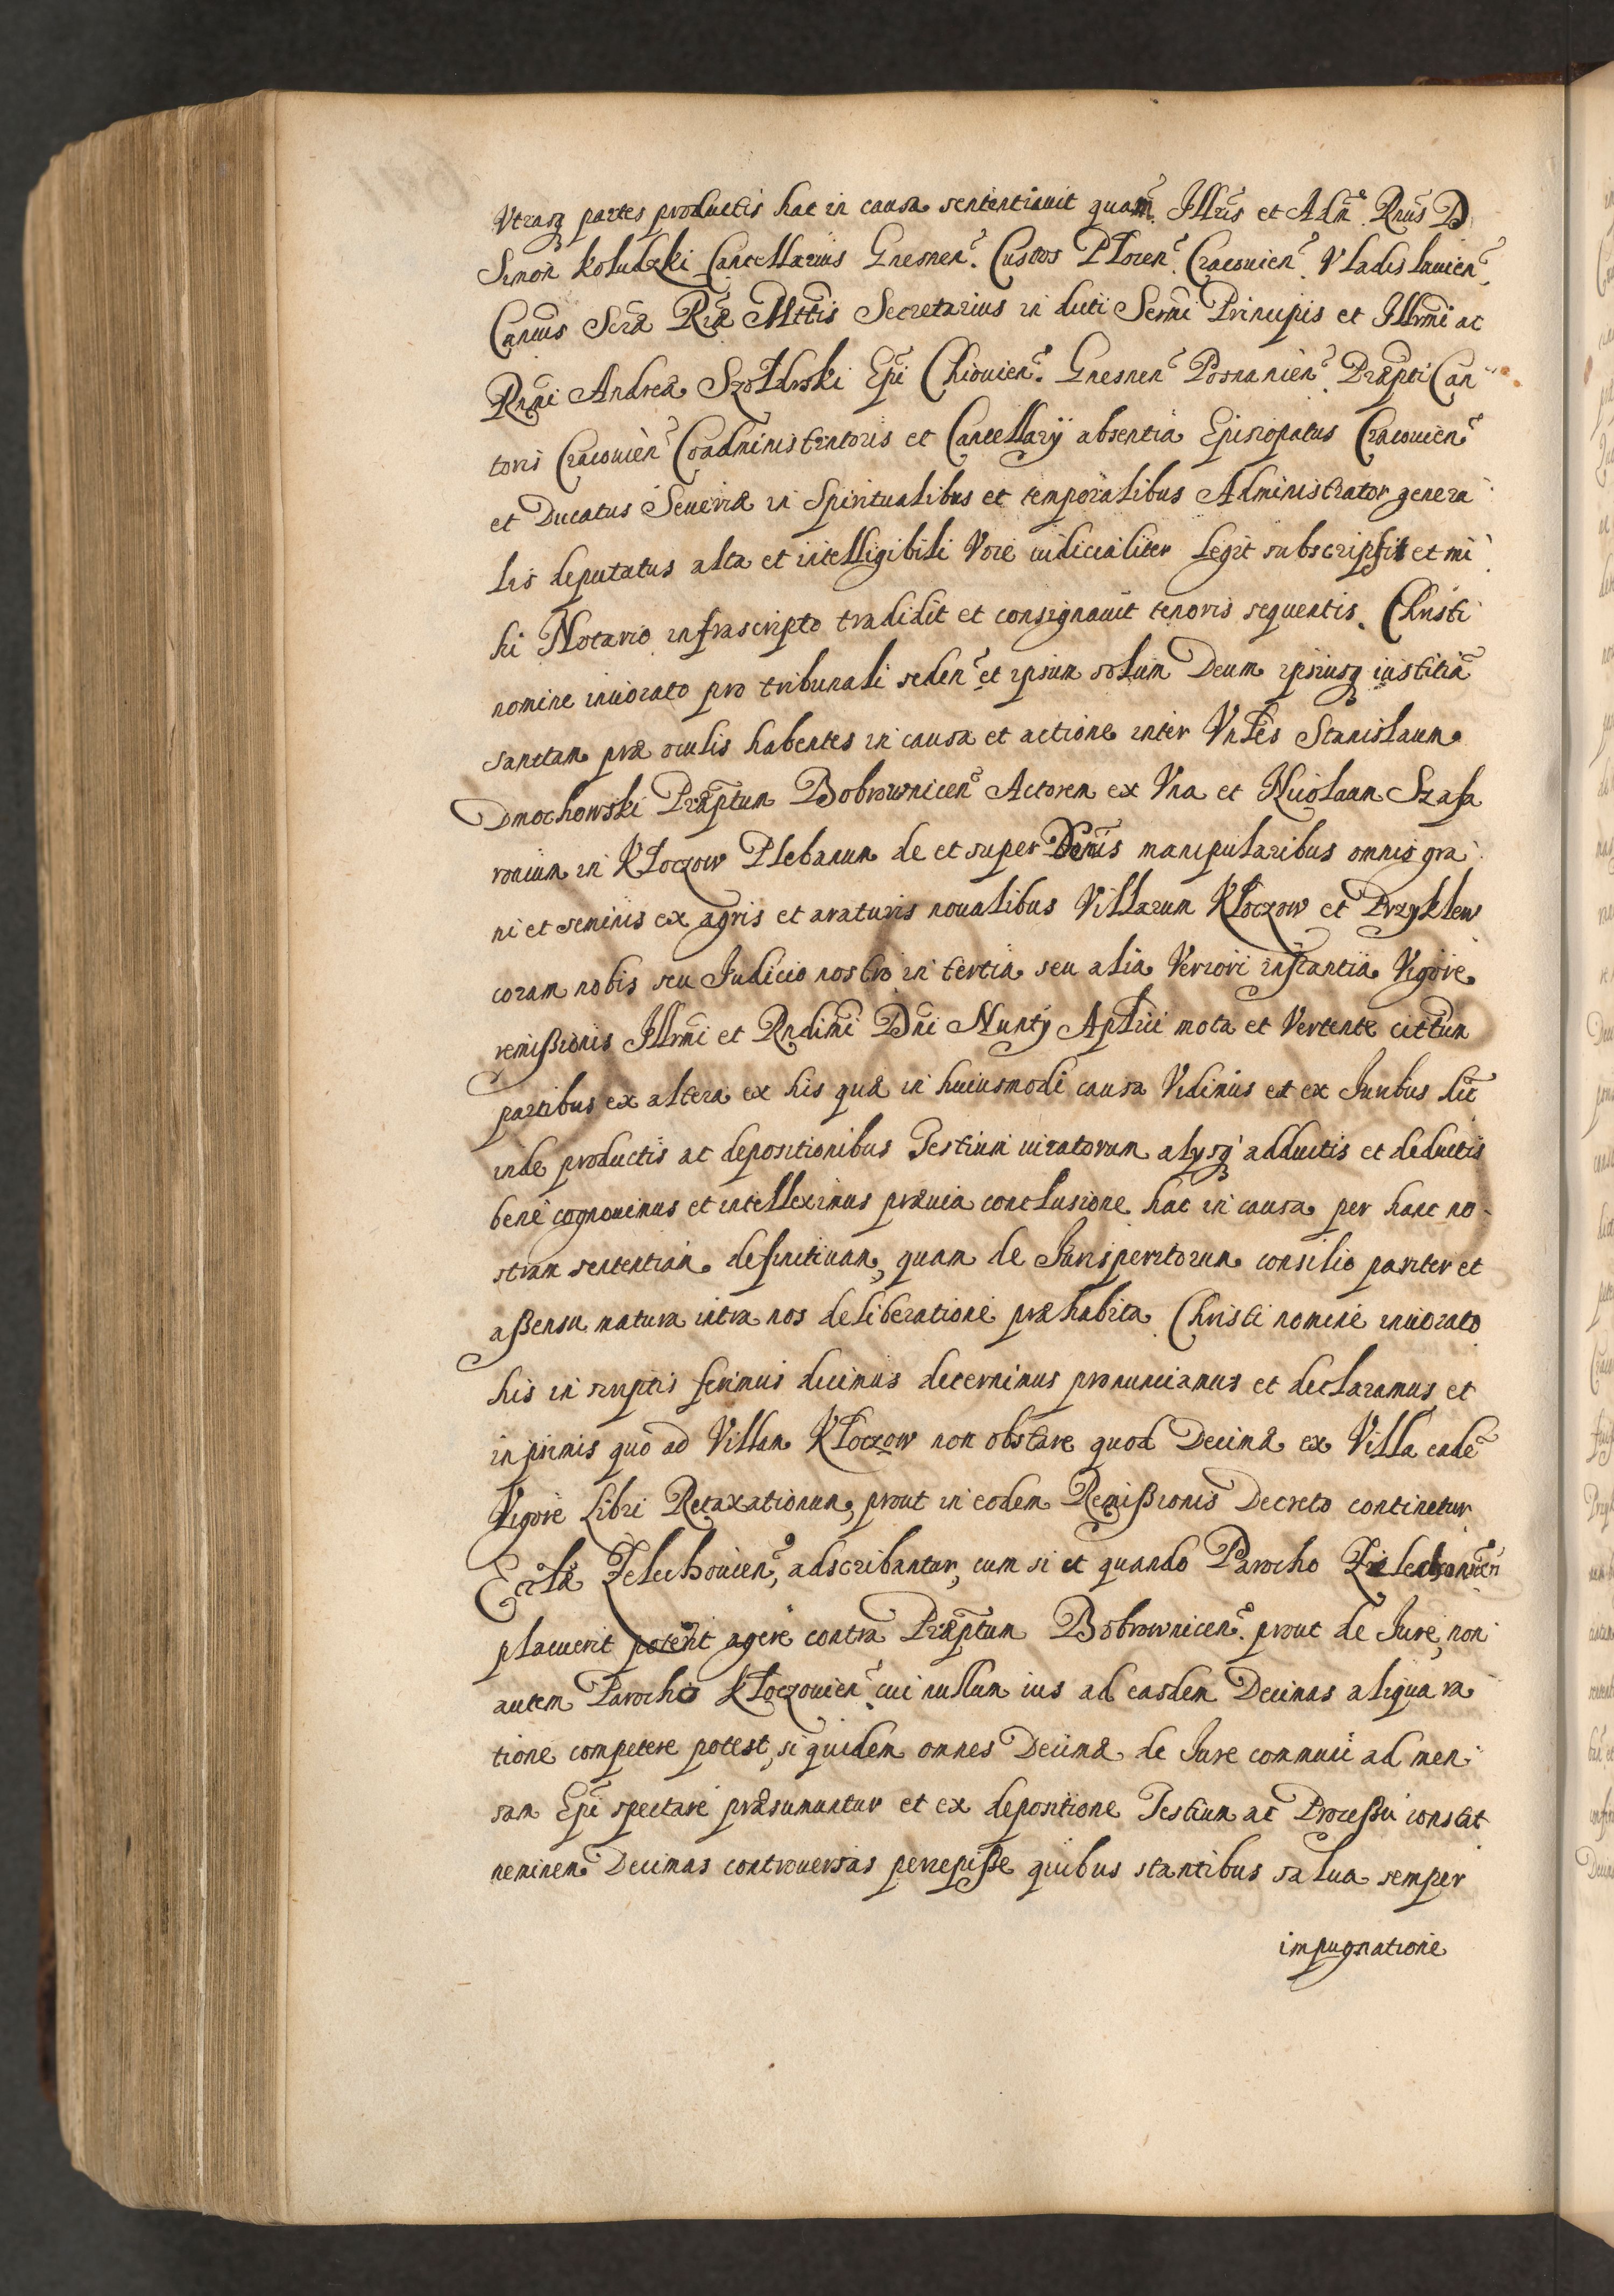 Vtrasq partes productis hac in causa sententiauit quam Illris et Adm Rnus D
Simon Koludzki Cancellarius Gnesnen. Custos Plocen. Cracouien. Vladislauien
Cancus Scræ Riæ Mttis Secretarius in duti Sermi Principis et Illrmi ac
Rnni Andreæ Szołdrski Epi Chiouien. Gnesnen Posnanien. Præpti Can
toris Cracouien Coadministratoris et Cancellarÿ absentia Episcopatus Cracouien
et Ducatus Seueriæ in Spiritualibus et temporalibus Administrator genera
lis deputatus alta et intelligibili Voce iudicialiter legit subscripsit et mi
hi Notario infrascripto tradidit et consignauit tenoris sequentis. Christi
nomine inuocato pro tribunali seden et ipsum solum Deum ipsiusq iustitiã
sanctam præ oculis habentes in causa et actione inter Vnles Stanislaum
Dmochowski Præptum Bobrownicen Actorem ex Vna et Nicolaum Szafa
rocium in Kłoczow Plebanum de et super Denis manipularibus omnis gra
ni et seminis ex agris et araturis noualibus Villarum Kłoczow et Przyklew
coram nobis seu Judicio nostro in tertia seu alia Veriori instantia Vigore
remißionis Illrmi et Rndimi Dni Nuntÿ Aplici mota et Vertente cittum
partibus ex altera ex his quæ in huiusmodi causa Vidimus et ex Juribus hic
inde productis ac depositionibus Testium iuratorum alysq adductis et deductis
bene cognouimus et intelleximus præuia conclusione hac in causa per hanc no
stram sententiam definitiuam, quam de Jurisperitorum consilio pariter et
aßensu matura intra nos deliberatione præhabita Christi nomine inuocato
his in scriptis ferimus dicimus decernimus pronunciamus et declaramus et
inprimis quo ad Villam Kłoczow non obstare quod Decimæ ex Villa eadẽ
Vigore Libri Retaxationum, prout in eodem Remißionis Decreto continetur
Ecclæ Zelechouien, adscribantur, cum si et quando Parocho Zelechouien
placuerit poterit agere contra Præptum Bobrownicen. prout de Jure, non
autem Parocho Kłoczouien cui nullum ius ad easdem Decimas aliqua ra
tione competere potest, siquidem omnes Decimæ de Jure communi ad men
sam Epi spectare præsumuntur et ex depositione Testium ac Proceßu constat
neminem Decimas controuersas percepiße quibus stantibus salua semper
impugnatione